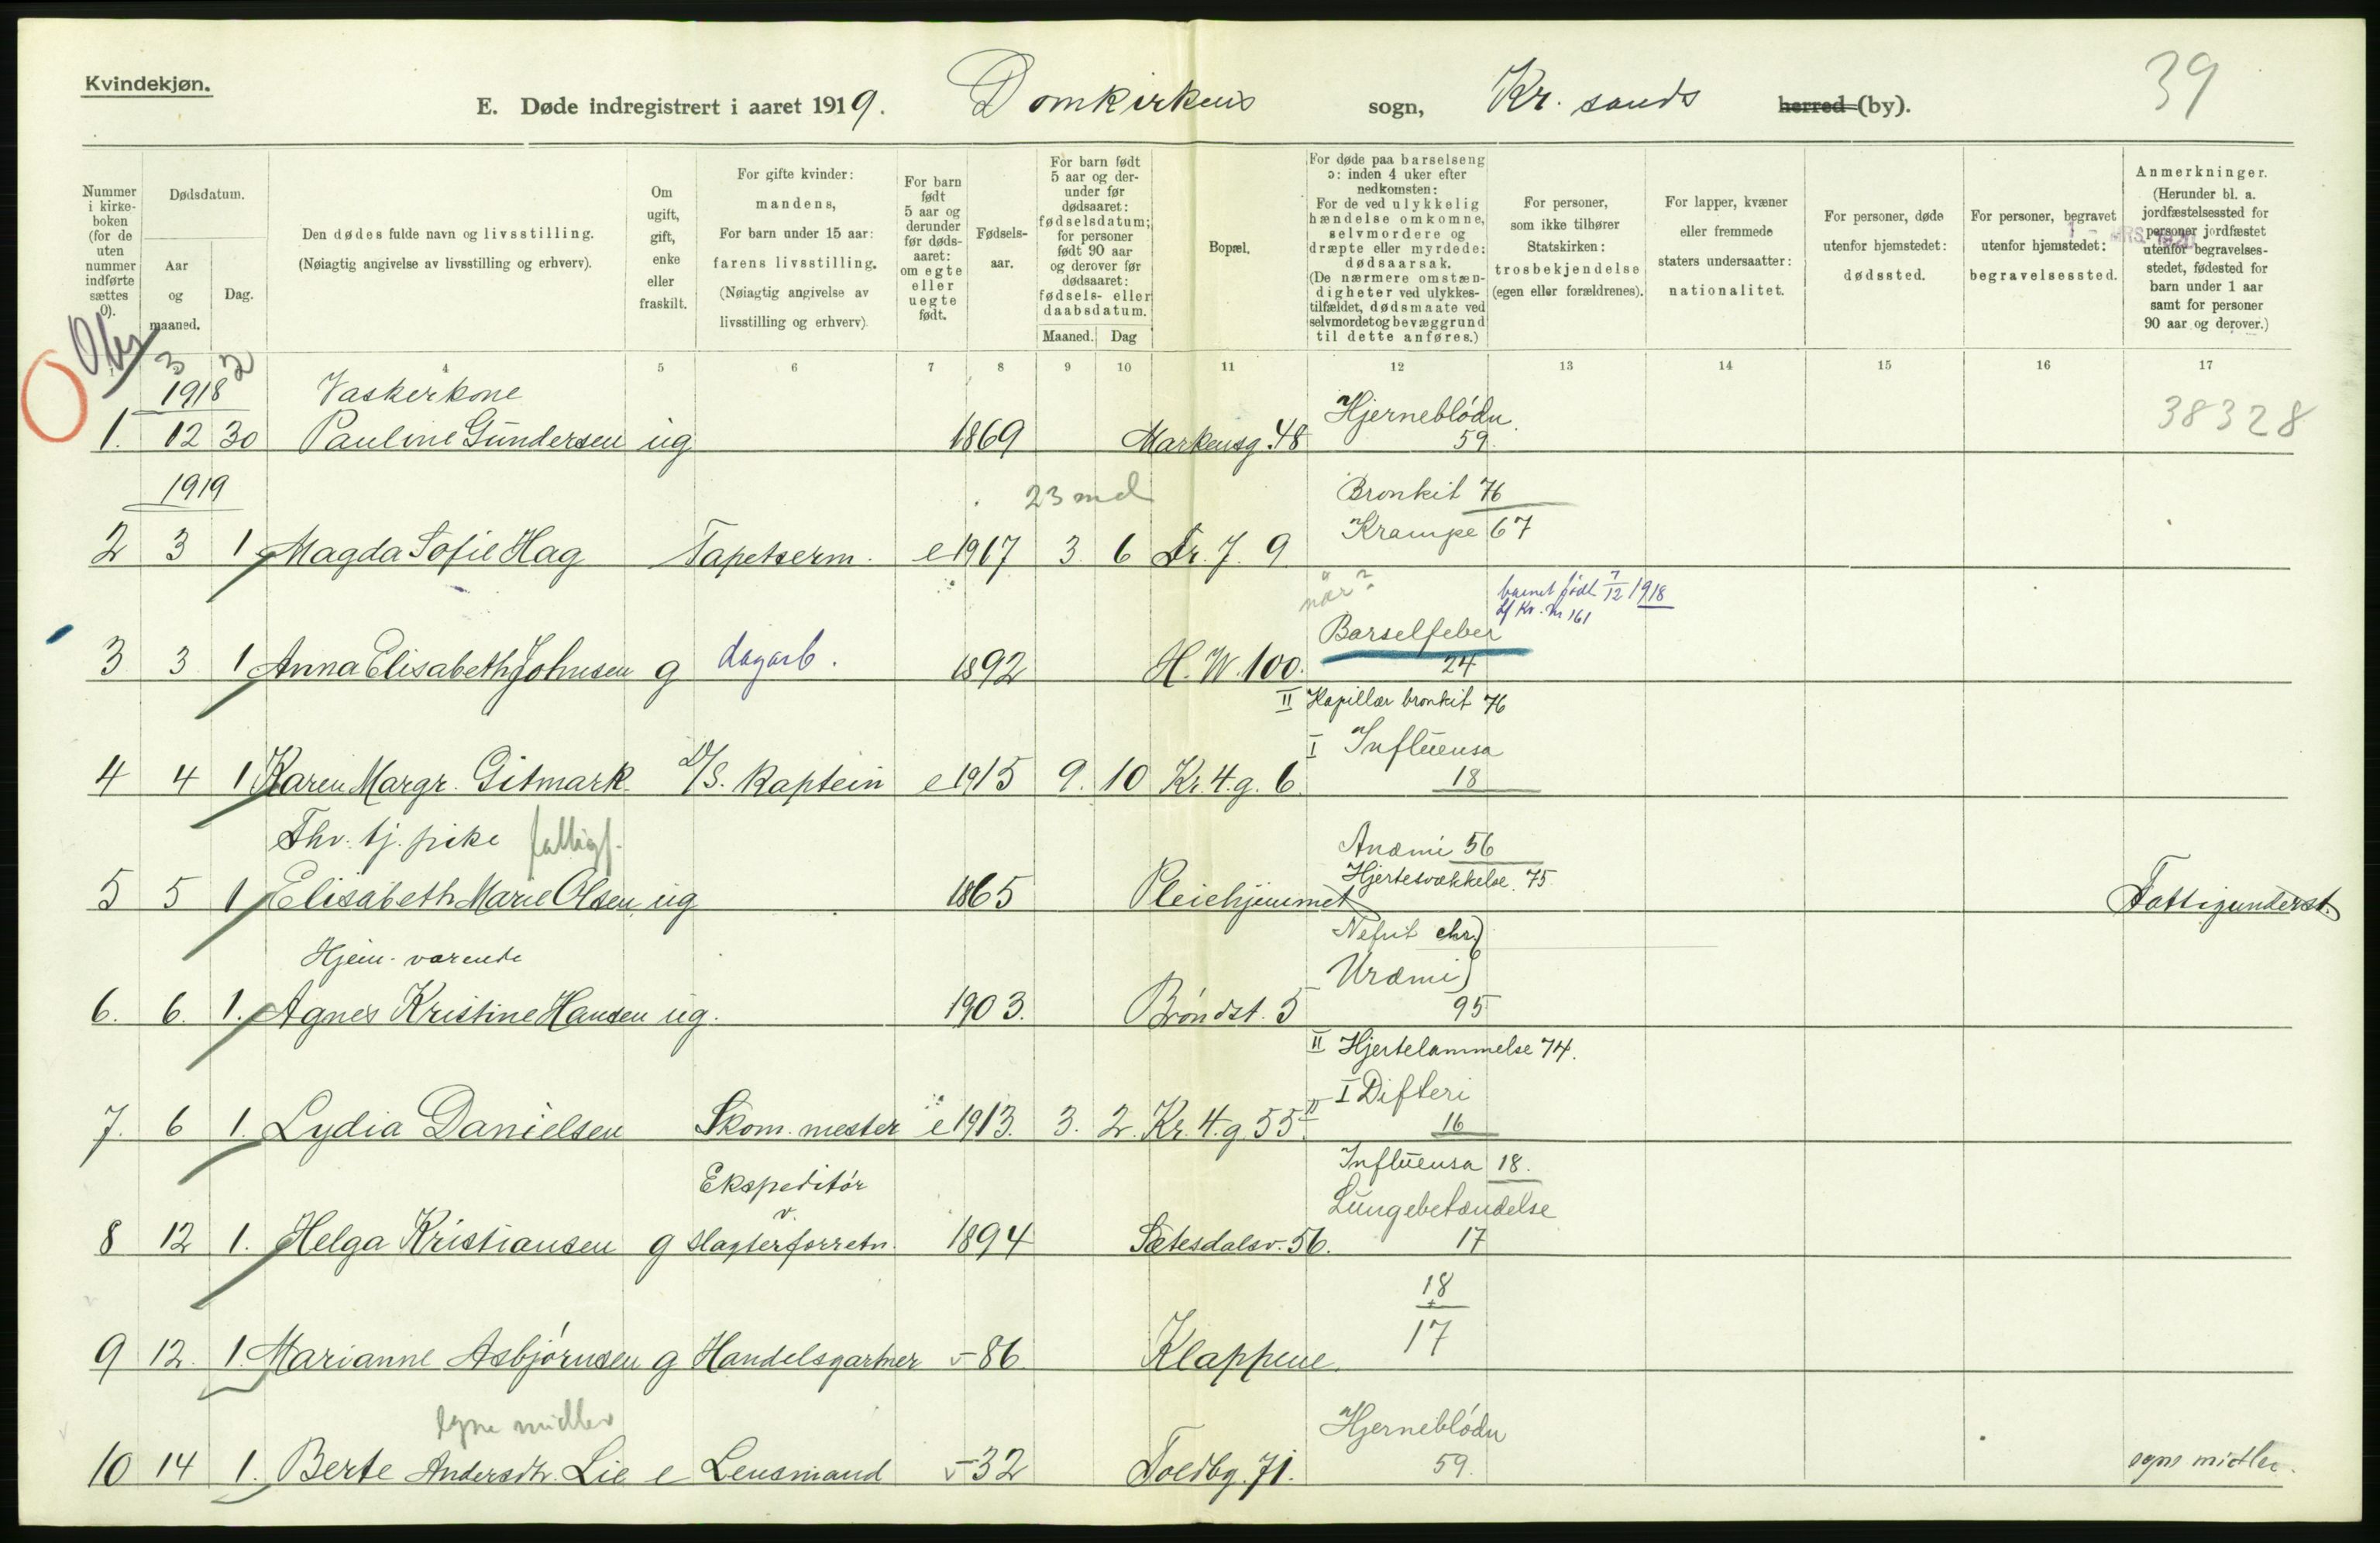 Kvindekjøn.
E. Døde indregistrert i aaret 1919. Domkirkens sogn, Kr. sands herred (by).
39
Nummer i kirkeboken (for de uten nummer indførte sættes 0).
Dødsdatum.
Aar og maaned.
Dag.
Den dødes fulde navn og livsstilling.
(Nøiagtig angivelse av livsstilling og erhverv).
Om ugift, gift, enke eller fraskilt.
For gifte kvinder: mandens,
For barn under 15 aar: farens livsstilling.
(Nøiagtig angivelse av livsstilling og erhverv)
For barn født 5 aar og derunder før dødsaaret: om egte eller uegte født.
Fødselsaar.
For barn født 5 aar og derunder før dødsaaret: fødselsdatum; for personer født 90 aar og derover før dødsaaret: fødsels- eller daabsdatum.
Maaned. Dag
Bopæl.
For døde paa barselseng ɔ: inden 4 uker efter nedkomsten:
For de ved ulykkelig hændelse omkomne, selvmordere og dræpte eller myrdede: dødsaarsak.
(De nærmere omstændigheter ved ulykkestilfældet, dødsmaate ved selvmordet og bevæggrund til dette anføres.)
For personer, som ikke tilhører Statskirken: trosbekjendelse (egen eller forældrenes).
For lapper, kvæner eller fremmede staters undersaatter: nationalitet.
For personer, døde utenfor hjemstedet: dødssted.
For personer, begravet utenfor hjemstedet: begravelsessted.
Anmerkninger.
(Herunder bl. a. jordfæstelsessted for personer jordfæstet utenfor begravelsesstedet, fødested for barn under 1 aar samt for personer 90 aar og derover.)
3 2 4 5 6 7 8 9 10 11 12 13 14 15 16 17
1918 Vaskerkone Hjerneblödn. 38328
1. 12 30 Pauline Gundersen ug 1869 Markensg. 48 59.
1919 23 md Bronkit 76
Krampe 67
2 3 1 Magda Sofie Hag Tapetserm. e 1917 3. 6 Dr. 7. 9
når? barnet født 7/12 1918
Kr. Nr 161
Barselfeber
3 3 1 Anna Elisabeth Johnsen g dagarb. 1892 H. W. 100. 24
II Kapillær bronkit 76
I Influensa
4 4 1 Karen Margr. Gitmark D/S. kaptein e 1915 9. 10 Kr. 4. g. 6. 18
Fhv. tj. pike Anæmi 56
Hjertesvækkelse. 75
5 5 1 Elisabeth Marie Olsen ug 1865 Pleiehjemmet Fattigunderst.
Nefrit chr.
Hjem-værende Uræmi
6. 6. 1. Agnes Kristine Hansen ug. 1903. Bröndst. 5 95
II Hjertelammelse 74.
I Difteri
7. 6 1. Lydia Danielsen Skom. mester e 1913. 3. 2. Kr. 4. g 55 II 16
Influensa 18.
Ekspeditör Lungebetændelse
v.
8 12 1. Helga Kristiansen g slagterforretn. 1894 Sætesdalsv. 56. 17
18
+
17
9 12. 1. Marianne Asbjörnsen g Handelsgartner - 86 Klappene.
Egne midler Hjerneblödn
10 14 1. Berte Andersdtr. Lie e Lensmand - 32 Toldbg. 71. 59. egne midler.